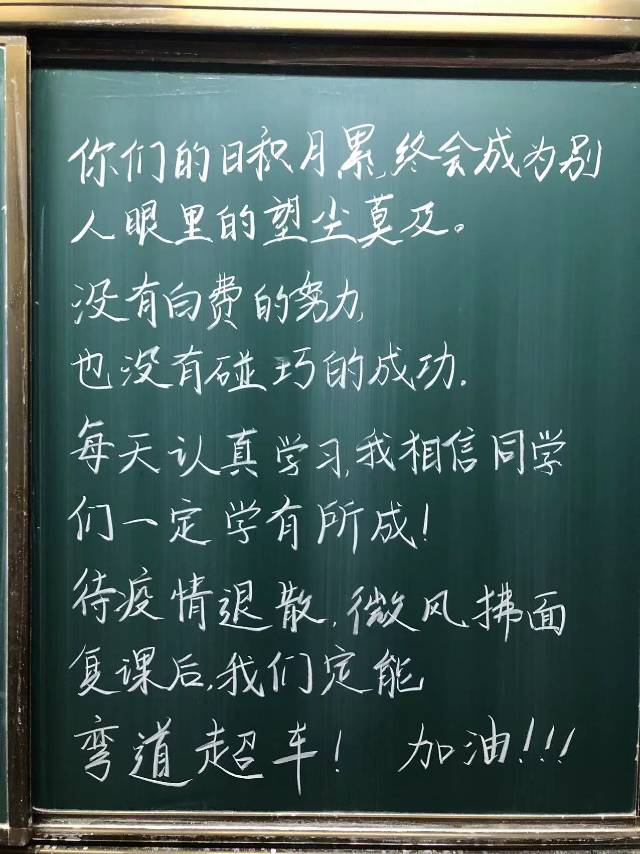 你们的日积月累,终会成为别
人眼里的望尘莫及。
没有白费的努力,
也没有碰巧的成功.
每天认真学习,我相信同学
们一定学有所成!
待疫情退散,微风拂面
复课后,我们定能
弯道超车! 加油!!!